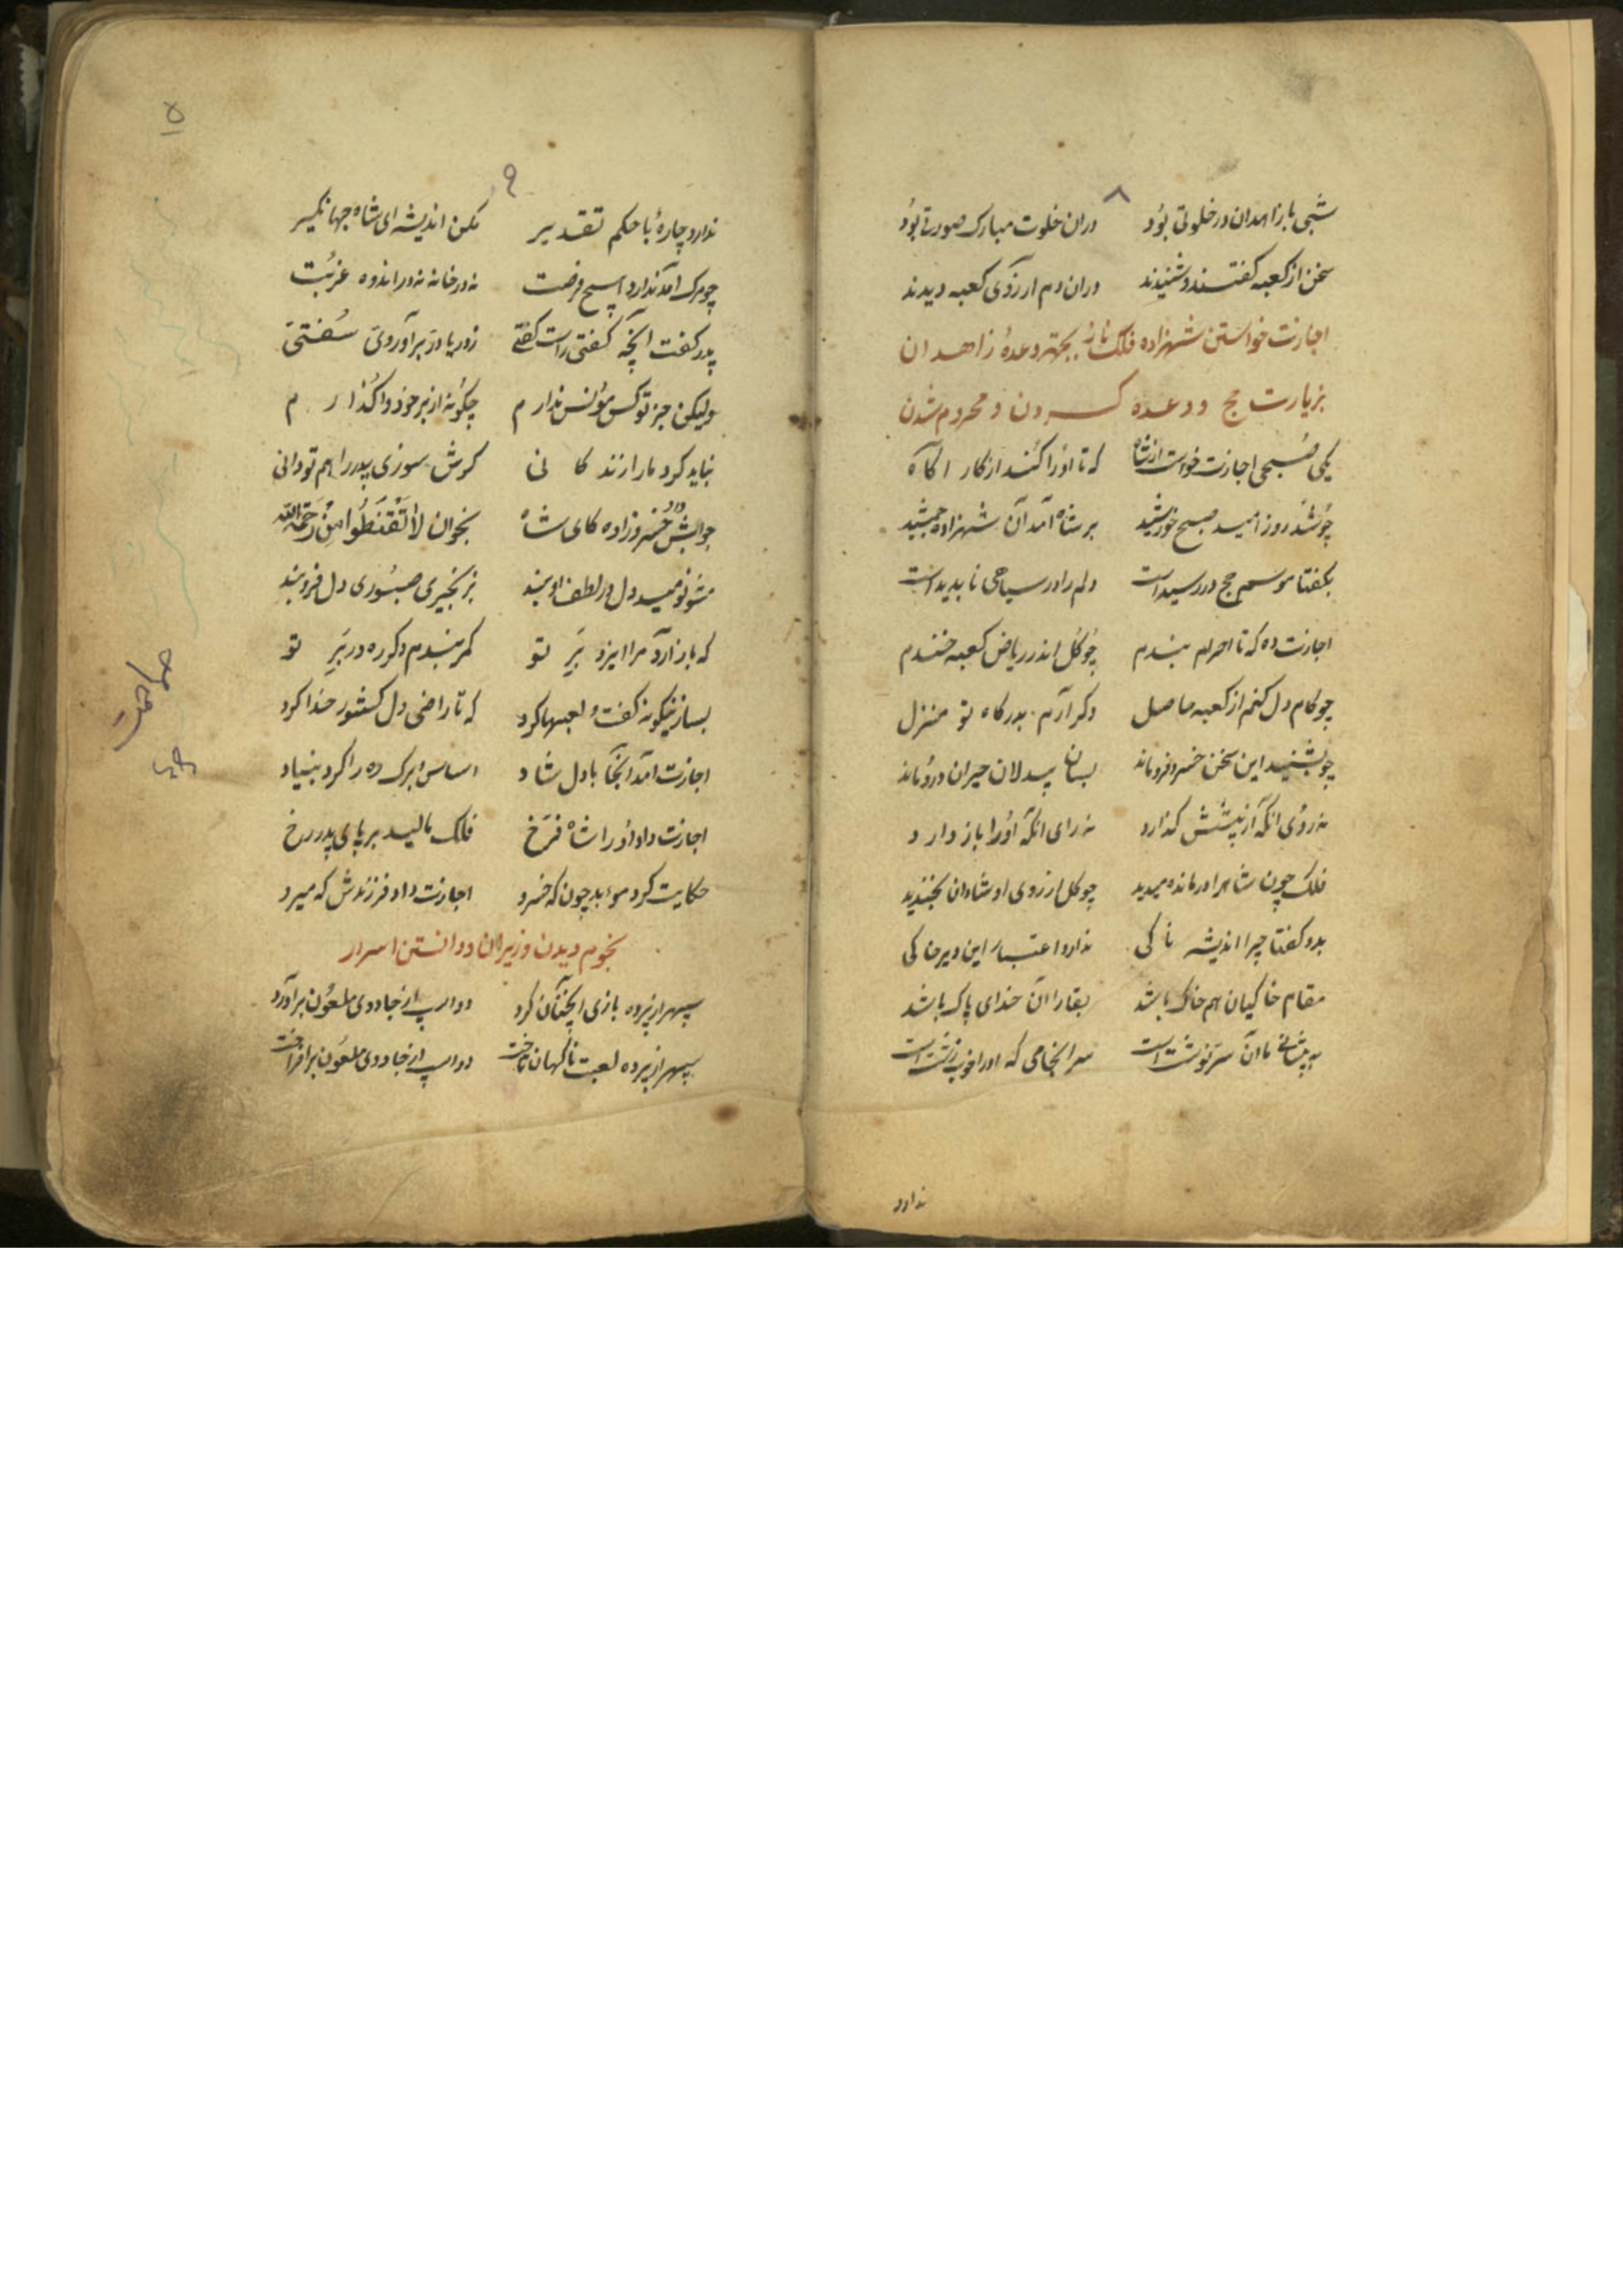 ۸
شبی با زاهدان در خلوتی بود دران خلوت مبارک صورتی بود
سخن از کعبه گفتند و شنیدند دران دم آرزوی کعبه دیدند
اجازت خواستن شهزاده فلک ناز بجهة وعدهٔ زاهدان
بزیارت حج و وعده کردن و محروم شدن
یکی صبحی اجازت خواست از شاه که تا او را کند از کار اکاه
چو شد روز امید صبح خورشید بر شاه آمد آن شهزاده جمشید
بکفتا موسم حج در رسیداست دلم را در سیاحی ناپدیداست
اجازت ده که تا احرام بندم چو کل اندر ریاض کعبه خندم
چو کام دل کنم از کعبه حاصل دکر آرم بدرکاه تو منزل
چو بشنید این سخن خسرو فرو ماند بسان بیدلان حیران درو ماند
نه روی انکه از پیشش کذارد نه رای انکه او را باز دارد
فلک چون شاهرا درمانده میدید چو کل از روی او شادان بخندید
بدو کفتا چرا اندیشه ناکی ندارد اعتبار این دیر خاکی
مقام خاکیان هم خاک باشد بقا را آن خدای پاک باشد
به پیشانی ما آن سرنوشت است سرانجامی که او را خوب و زشت است
ندارد
۱۵
۹
ندارد چارهٔ با حکم تقدیر مکن اندیشه ای شاه جهانکیر
چو مرک آمد ندارد هیچ فرصت نه در خانه نه در اندوه غربت
پدر کفت آنچه کفتی راست کفتی ز دریا در برآوردی سفتی
ولیکن جز تو کس مونس ندارم چکونه از بر خود واکذارم
نباید کرد ما را زندکانی کرش سوزی پدر را هم تو دانی
جوابش داد خسرو زاده کای شاه بخوان لا تقنطوا من رحمة الله
مشو نومید دل در لطف او بند بزنجیری صبوری دل فرو بند
که باز آرد مرا ایزد بر تو کمر بندم دکر ره در بر تو
بسا زینکونه کفت و لعبها کرد که تا راضی دل کشور خدا کرد
اجازت آمد آنجا با دل شاد اساس و برک ره را کرد بنیاد
اجازت داد او را شاه فرخ فلک مالید بر پای پدر رخ
حکایت کرد موبد چون که خسرو اجازت داد فرزندش که میرو
نجوم دیدن وزیران و دانستن اسرار
سپهر از پرده بازی اینچنان کرد دو اسب از جادوی ملعون برآورد
سپهر از پرده لعبت ناکهان باخت دو اسب از جادوی ملعون برافراخت